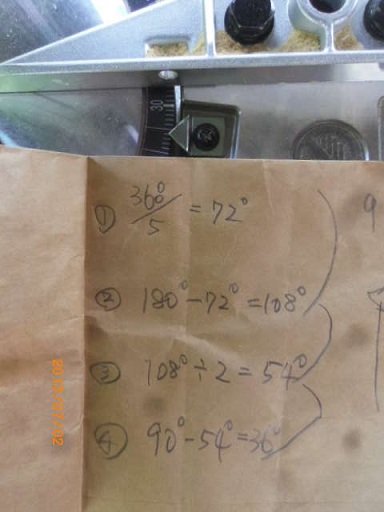 30
① 360°/5 = 72°
② 180° - 72° = 108°
③ 108° ÷ 2 = 54°
④ 90° - 54° = 36°
9